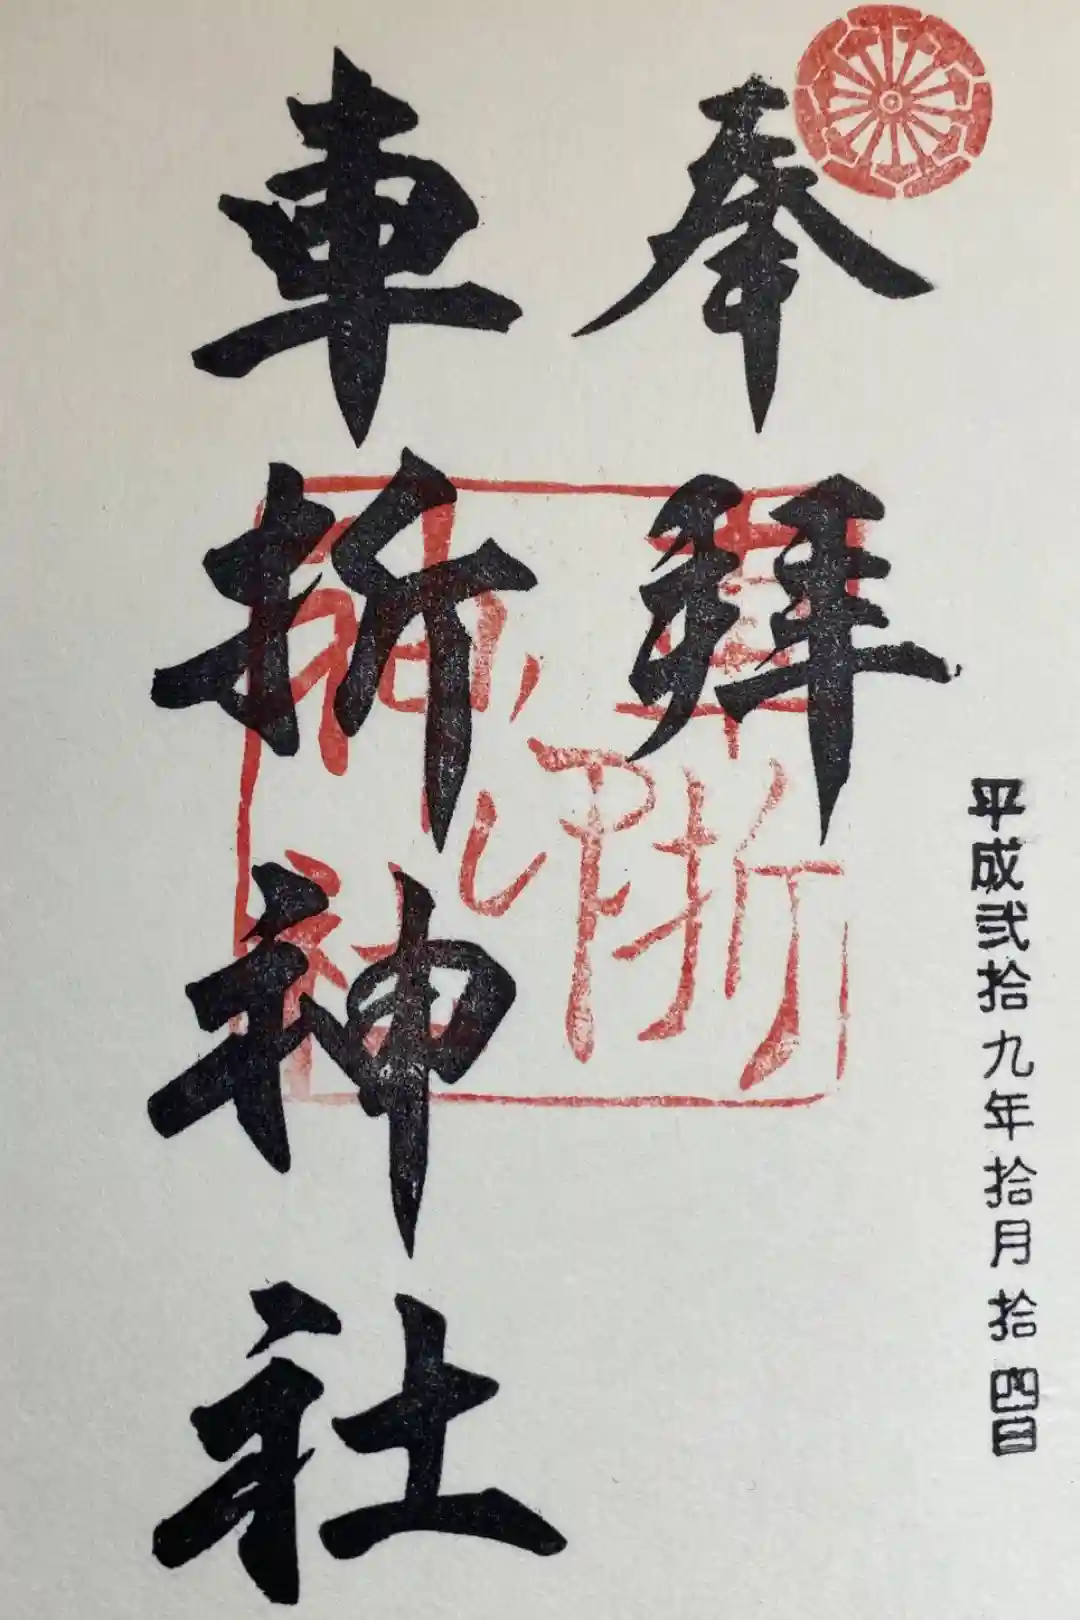 平成弐拾九年拾月拾四日
奉拝
車折神社
車折神社之印